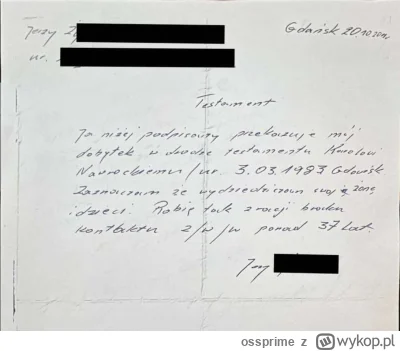 Jerzy
Gdańsk 20.10.2011
ur.
Testament
Ja niżej podpisany przekazuję mój
dobytek w drodze testamentu Karolowi
Nawrockiemu /ur. 3.03.1983 Gdańsk
Zaznaczam że wydziedziczam swoją żonę
i dzieci. Robię tak z racji braku
kontaktu z/w/w ponad 37 lat.
Jerzy
ossprime z wykop.pl